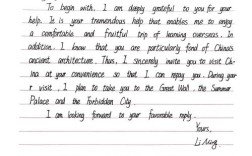 To begin with, I am deeply grateful to you for your
help. It is your tremendous help that enables me to enjoy
a comfortable and fruitful trip of learning overseas. In
addition, I know that you are particularly fond of China's
ancient architecture. Thus, I sincerely invite you to visit Chi-
na at your convenience so that I can repay you. During your
r visit, I plan to take you to the Great Wall, the Summer
Palace and the Forbidden City.
I am looking forward to your favorable reply.
Yours,
Li Ming